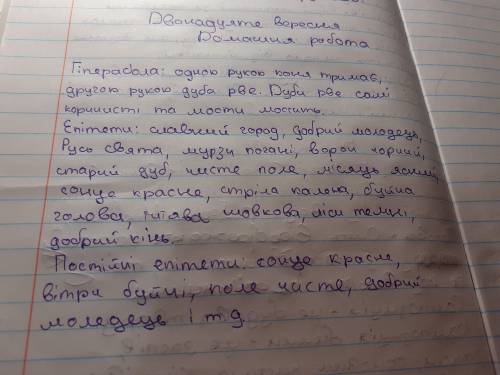 Двонадцяте вересня
Домашня робота
Гіпербола: одною рукою коня тримає,
другою рукою дуба рве. Дуби рве самі
коринисті та мости мостить.
Епітети: славний город, добрий молодець,
Русь свята, мурзи погані, ворон чорний,
старий дуб, чисте поле, місяць ясний,
сонце красне, стріла калона, буйна
голова, тятява шовкова, ліси темні,
добрий кінь.
Постійні епітети: сонце красне,
вітри буйні, поле чисте, добрий
моледець і т д.